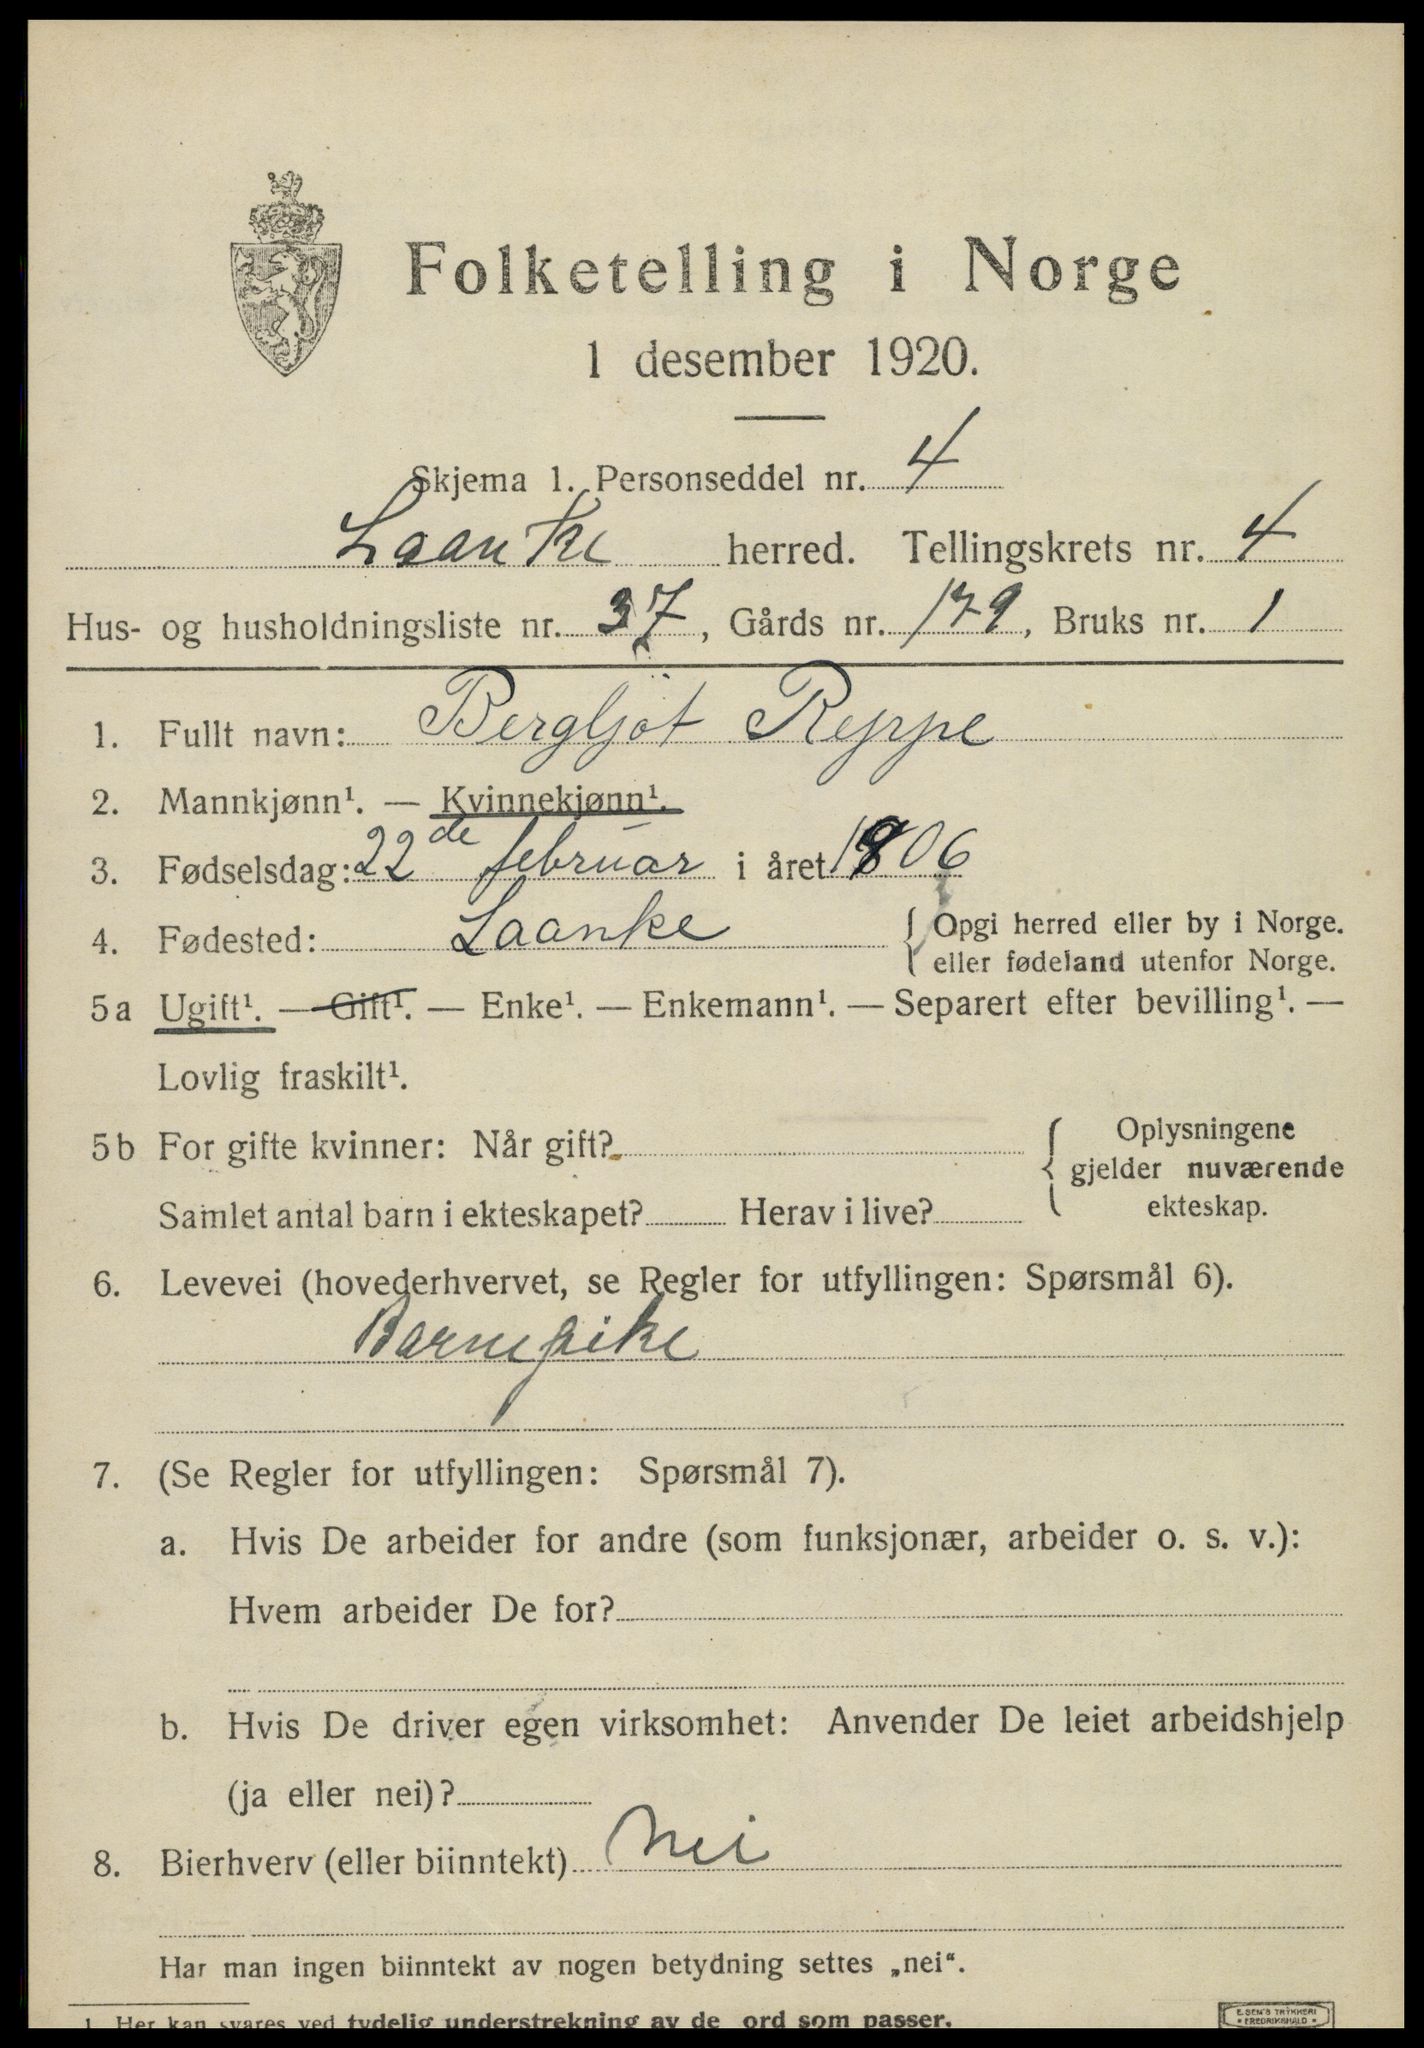 Folketelling i Norge
1 desember 1920.
Skjema 1. Personseddel nr. 4
Laanke herred. Tellingskrets nr. 4
Hus- og husholdningsliste nr. 37, Gårds nr. 179, Bruks nr. 1
1. Fullt navn: Bergljot Reppe
2. Mannkjønn¹. — Kvinnekjønn¹.
3. Fødselsdag: 22de februar i året 1906
4. Fødested: Laanke { Opgi herred eller by i Norge.
eller fødeland utenfor Norge.
5a Ugift¹. — Gift¹. — Enke¹. — Enkemann¹. — Separert efter bevilling¹. —
Lovlig fraskilt¹.
5b For gifte kvinner: Når gift? { Oplysningene
gjelder nuværende
Samlet antal barn i ekteskapet? Herav i live? ekteskap.
6. Levevei (hovederhvervet, se Regler for utfyllingen: Spørsmål 6).
Barnepike
7. (Se Regler for utfyllingen: Spørsmål 7).
a. Hvis De arbeider for andre (som funksjonær, arbeider o. s. v.):
Hvem arbeider De for?
b. Hvis De driver egen virksomhet: Anvender De leiet arbeidshjelp
(ja eller nei)?
8. Bierhverv (eller biinntekt) Nei
Har man ingen biinntekt av nogen betydning settes „nei“.
1. Her kan svares ved tydelig understrekning av de ord som passer.
E. SEM'S TRYKKERI
* FREDRIKSHALD *